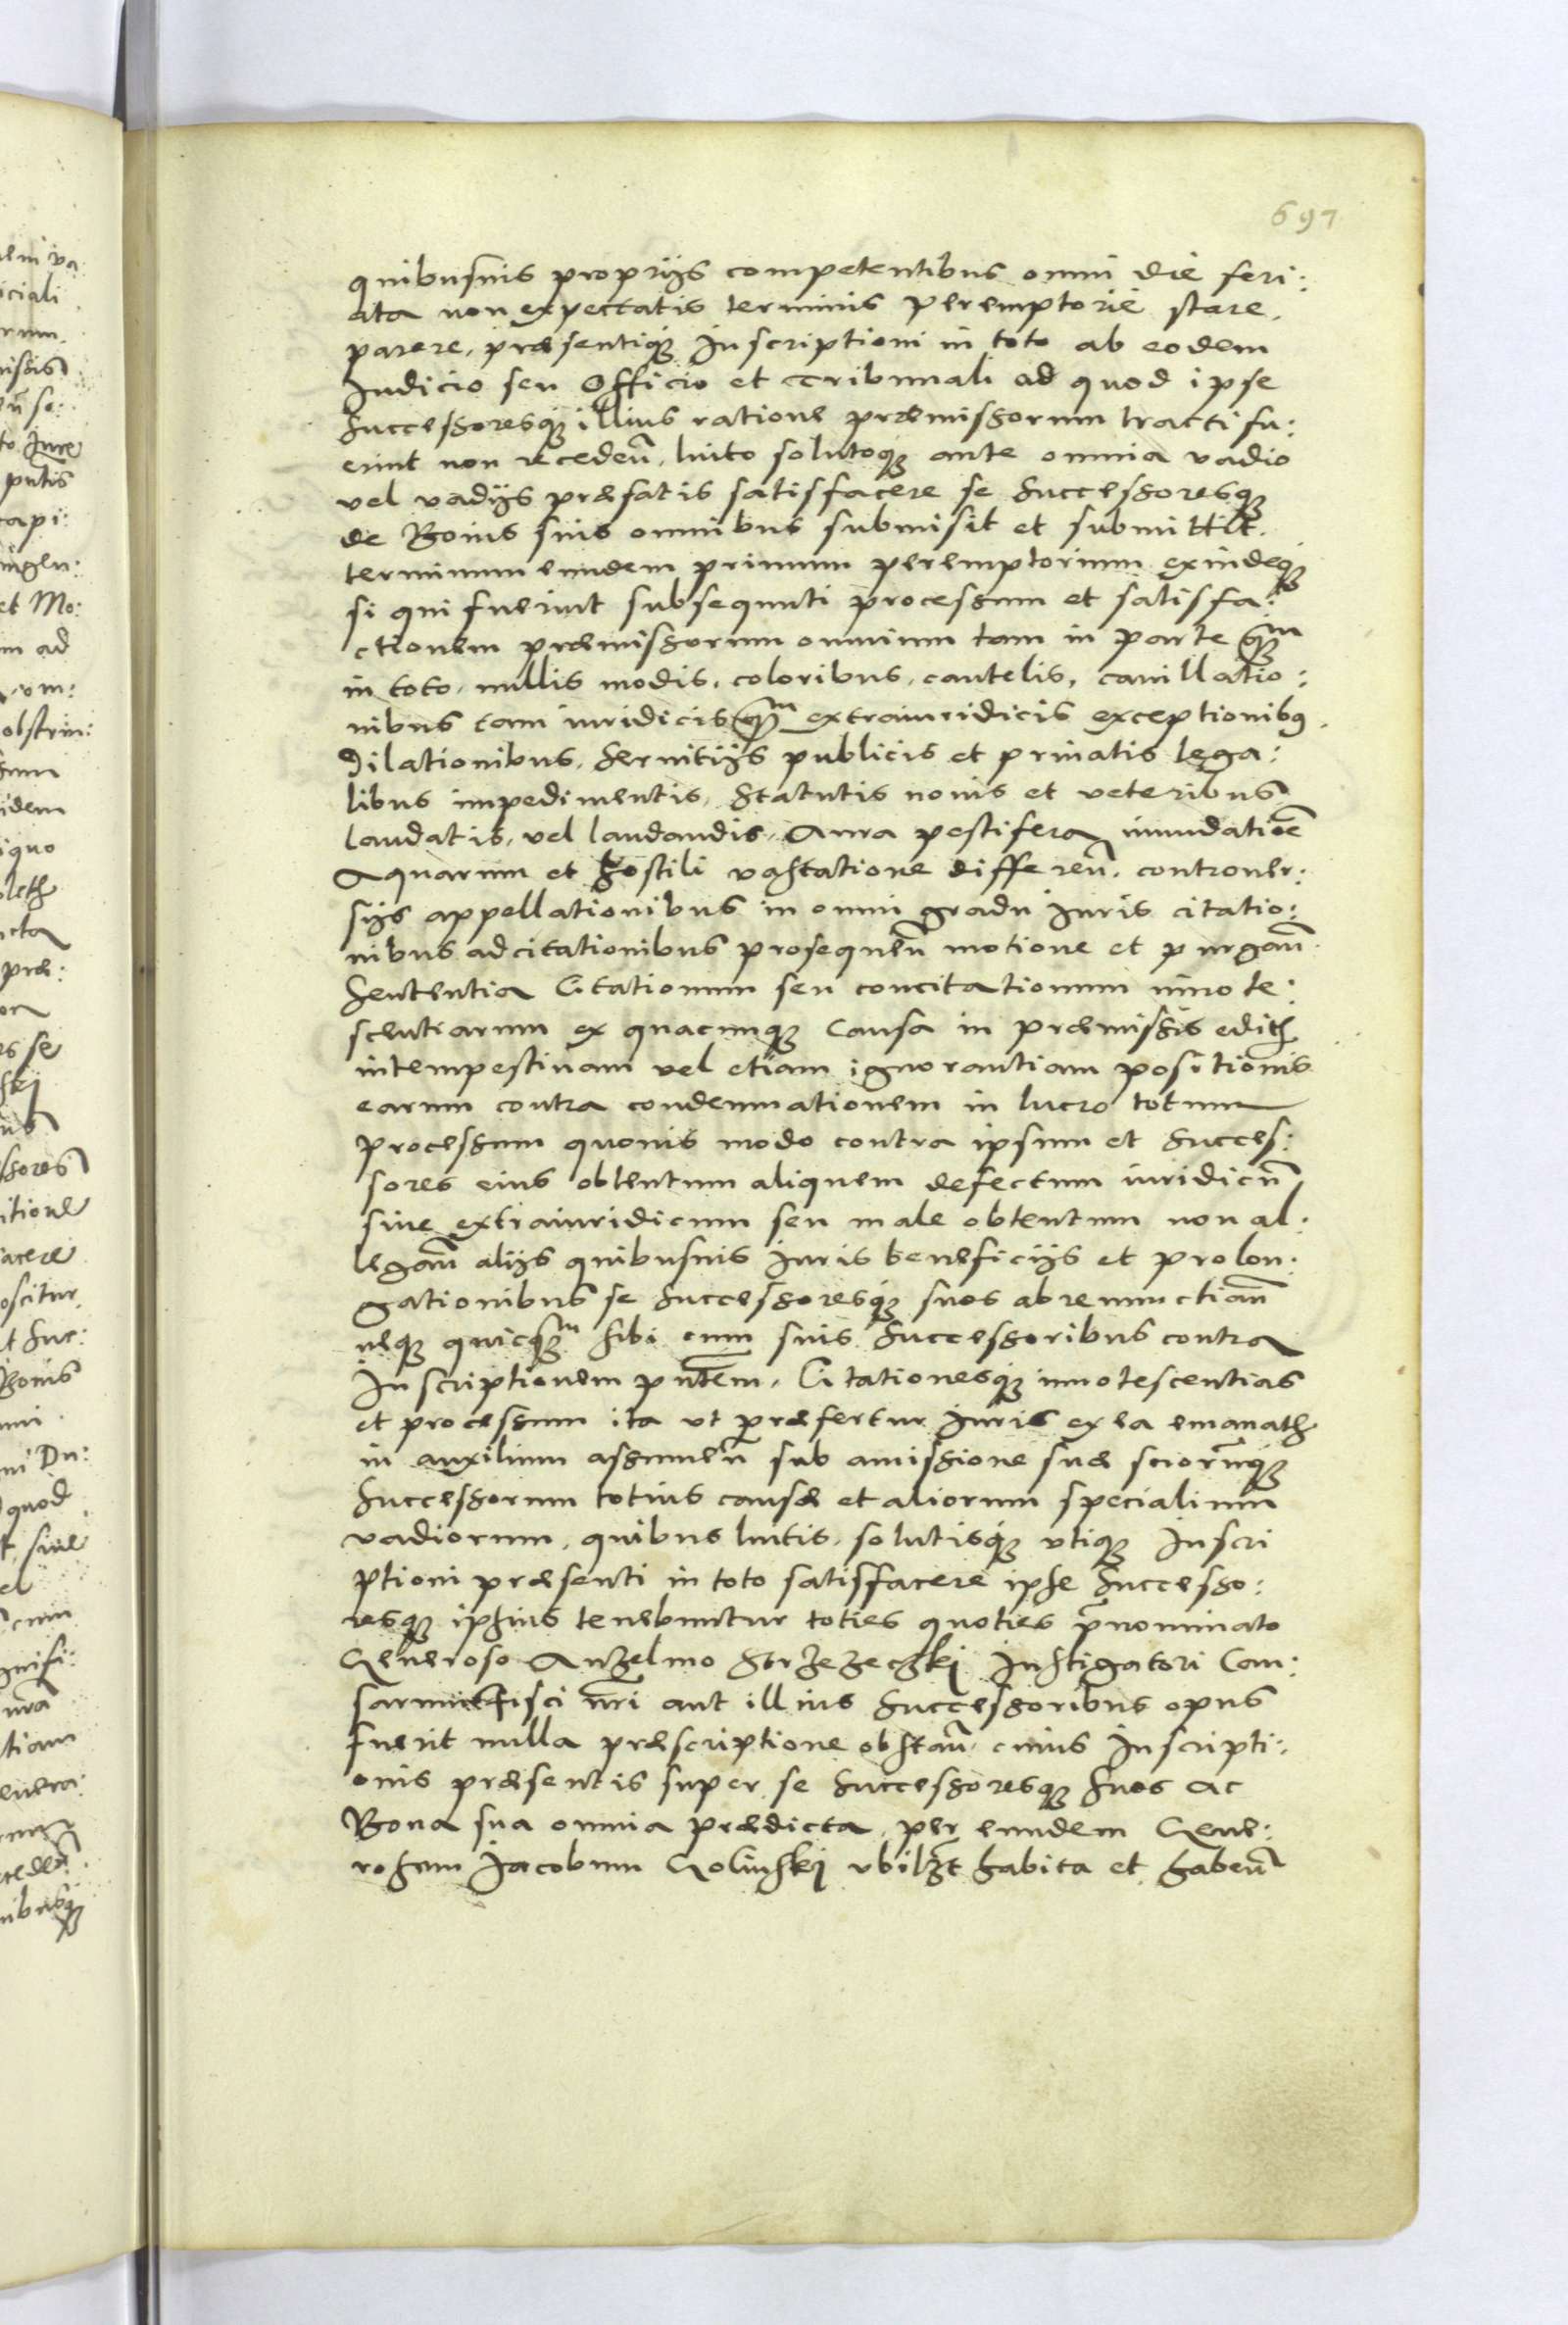 697
quibusuis proprijs competentibus omni die feri:
ata non expectatis terminis peremptorie stare,
parere, præsentiqȝ Inscriptioni in toto ab eodem
Iudicio seu Officio et Tribunali ad quod ipse
Successoresqȝ illius ratione præmissorum tracti fu:
erint non recedeñ, luito solutoqȝ ante omnia vadio
vel vadijs præfatis satisfacere se Successoresqȝ
de Bonis suis omnibus submisit et submittit.
terminum eundem primum peremptorium exindeqȝ
si qui fuerint subsequuti processum et satisfa:
ctionem præmissorum omnium tam in parte qȝm
in toto, nullis modis, coloribus, cautelis, cauillatio:
nibus tam iuridicis qȝm extraiuridicis exceptionibꝰ
Dilationibus, Seruitijs publicis et priuatis lega:
libus impedimentis, Statutis nouis et veteribus
laudatis, vel laudandis, Aura pestifera inundatiōē
Aquarum et hostili vastatione differeñ. controuer:
sijs appellationibus in omni gradu Iuris citatio:
nibus adcitationibus prosequeñ motione et purgañ
Sententia Citationum seu concitationum inno te:
scentiarum ex quacunqȝ Causa in præmissis edith
intempestiuam vel etiam ignorantiam positionis
earum contra condemnationem in lucro totum
processum quouis modo contra ipsum et Succes:
sores eius obtentum aliquem defectum iuridicū
siue extraiuridicum seu male obtentum non al:
legañ alijs quibusuis Iuris beneficijs et prolon:
gationibus se Successoresqȝ suos abrenunctiañ
neqȝ quicqȝm sibi cum suis Successoribus contra
Inscriptionem pñtem, Citationesqȝ innotescentias
et processum ita vt præfertur Iuris ex ea emanath
in auxilium assumeñ sub amissione suæ sciorūqȝ
Successorum totius causæ et aliorum specialium
vadiorum, quibus luitis, solutisqȝ vtiqȝ Inscri
ptioni præsenti in toto satisfacere ipse Successo:
resqȝ ipsius tenebuntur toties quoties p̄nominato
Generoso Anzelmo Gorzezeczkj Instigatori Cau:
sarum Fisci nr̄i aut illius Successoribus opus
fuerit nulla præscriptione obstañ. cuius Inscripti:
onis præsentis super se Successoresqȝ suos ac
Bona sua omnia prædicta, per eundem Gene:
rosum Jacobum Golinskj vbilȝt habita et habeñ